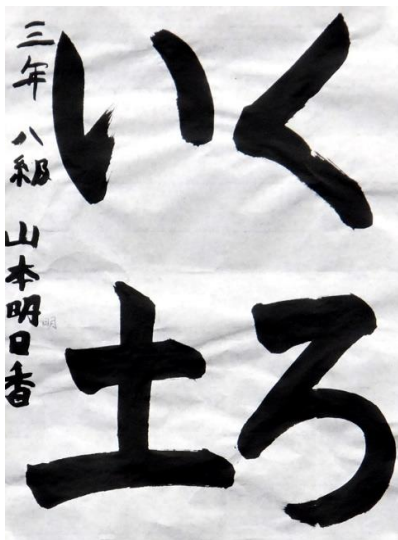 くろ
い土
三年 八級 山本明日香